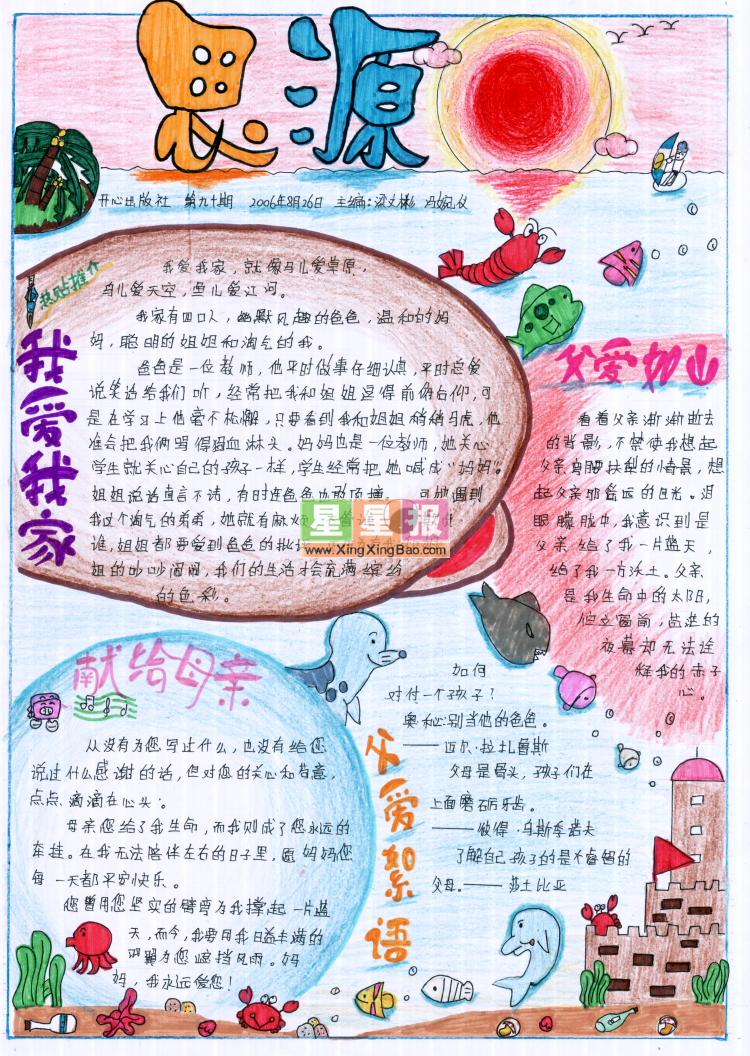 思源
开心出版社 第九十期 2006年8月26日 主编:梁文彬
热贴推介
我爱我家
我爱我家，就像鸟儿爱草原，
鸟儿爱天空，鱼儿爱江河。
我家有四口人，幽默风趣的爸爸，温和的妈
妈，聪明的姐姐和淘气的我。
爸爸是一位教师，他平时做事仔细认真，平时总爱
说笑话给我们听，经常把我和姐姐逗得前俯后仰，可
是在学习上他毫不松懈，只要看到我和姐姐稍稍马虎，他
准会把我俩骂得狗血淋头。妈妈也是一位教师，她关心
学生就关心自己的孩子一样，学生经常把她喊成“妈妈”。
姐姐说话直言不讳，有时连爸爸也敢顶撞 可她遇到
我这个淘气的弟弟，她就有麻烦
谁，姐姐都要受到爸爸的批
姐的吵吵闹闹，我们的生活才会充满缤纷
的色彩。
星星报
www.XingXingBao.com
父爱如山
看着父亲渐渐逝去
的背影，不禁使我想起
父亲弯腰扶犁的情景，想
起父亲那眷远的目光。泪
眼朦胧中，我意识到是
父亲给了我一片蓝天，
给了我一方沃土。父亲
是我生命中的太阳，
伫立窗前，
夜幕却无法淦
烁我的赤子
心。
献给母亲
从没有为您写过什么，也没有给您
说过什么感谢的话，但对您的关心和
点点滴滴在心头。
母亲您给了我生命，而我则成了您永远的
牵挂。在我无法陪伴左右的日子里，愿妈妈您
每一天都平安快乐。
您曾用您坚实的臂弯为我撑起一片蓝
天，而今，我要用我日益丰满的
羽翼为您遮挡风雨。妈
妈，我永远爱您！
父爱絮语
如何
对付一个孩子？
奥秘:别当他的爸爸。
——迈尔·拉扎鲁斯
父母是骨头，孩子们在
上面磨砺牙齿。
——彼得·乌斯季诺夫
了解自己孩子的是不睿智的
父母。——莎士比亚